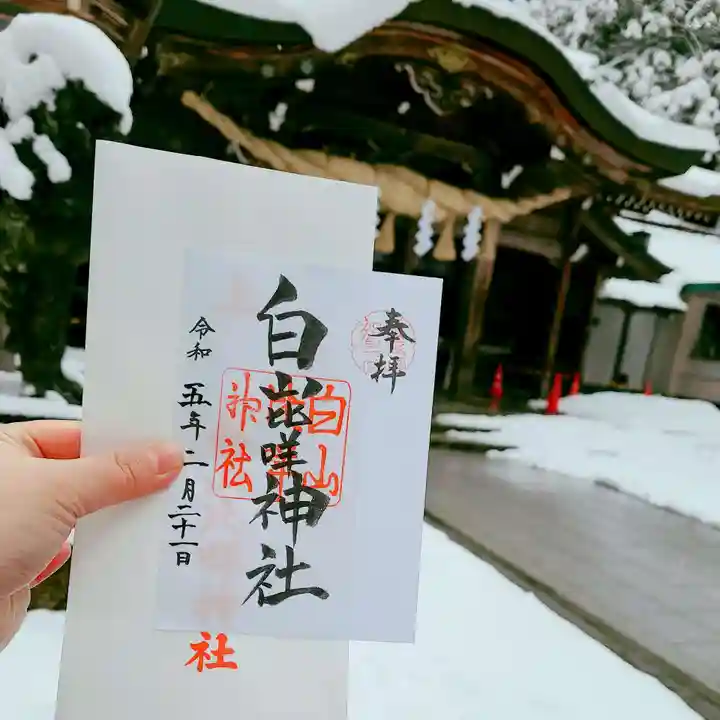 奉拝
白山
神社
白山比咩神社
令和五年二月二十一日
社